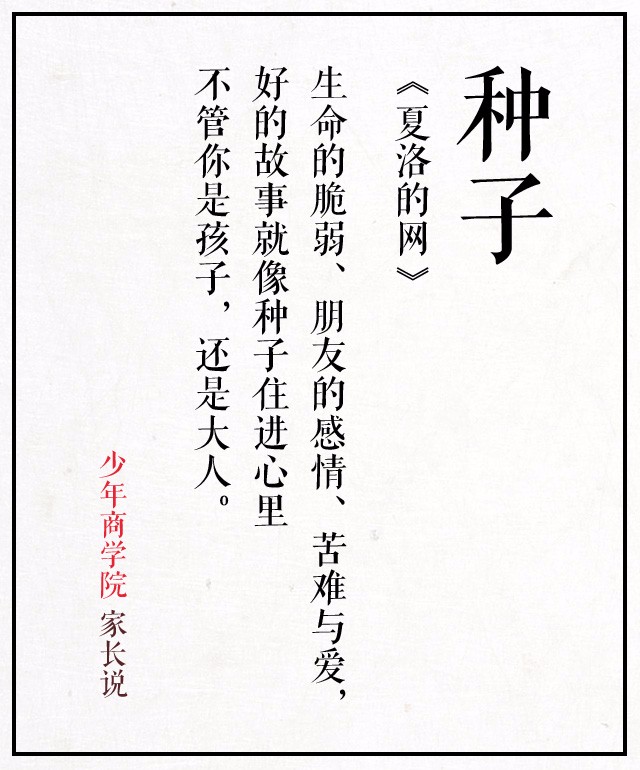 种子
《夏洛的网》
生命的脆弱、朋友的感情、苦难与爱，
好的故事就像种子住进心里
不管你是孩子，还是大人。
少年商学院 家长说